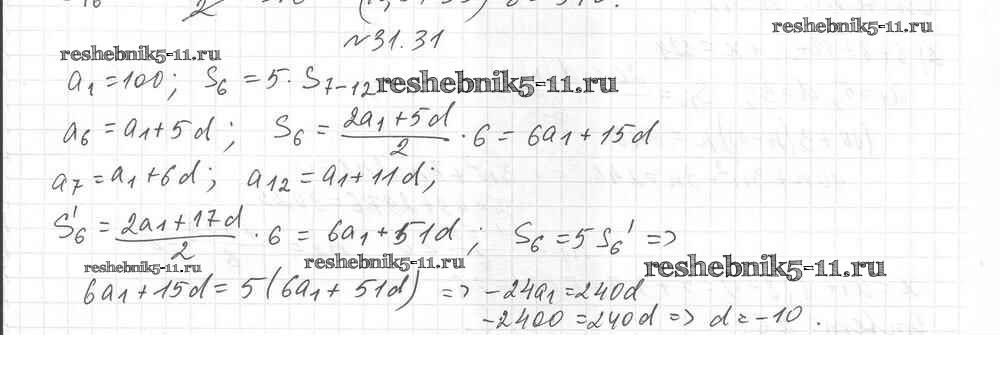 reshebnik5-11.ru
№31.31
reshebnik5-11.ru
a₁ = 100; S₆ = 5 · S₇₋₁₂ reshebnik5-11.ru
a₆ = a₁ + 5d; S₆ = (2a₁ + 5d)/2 · 6 = 6a₁ + 15d
a₇ = a₁ + 6d; a₁₂ = a₁ + 11d;
S₆' = (2a₁ + 17d)/2 · 6 = 6a₁ + 51d; S₆ = 5S₆' =>
reshebnik5-11.ru reshebnik5-11.ru reshebnik5-11.ru
6a₁ + 15d = 5(6a₁ + 51d) => -24a₁ = 240d
-2400 = 240d => d = -10.